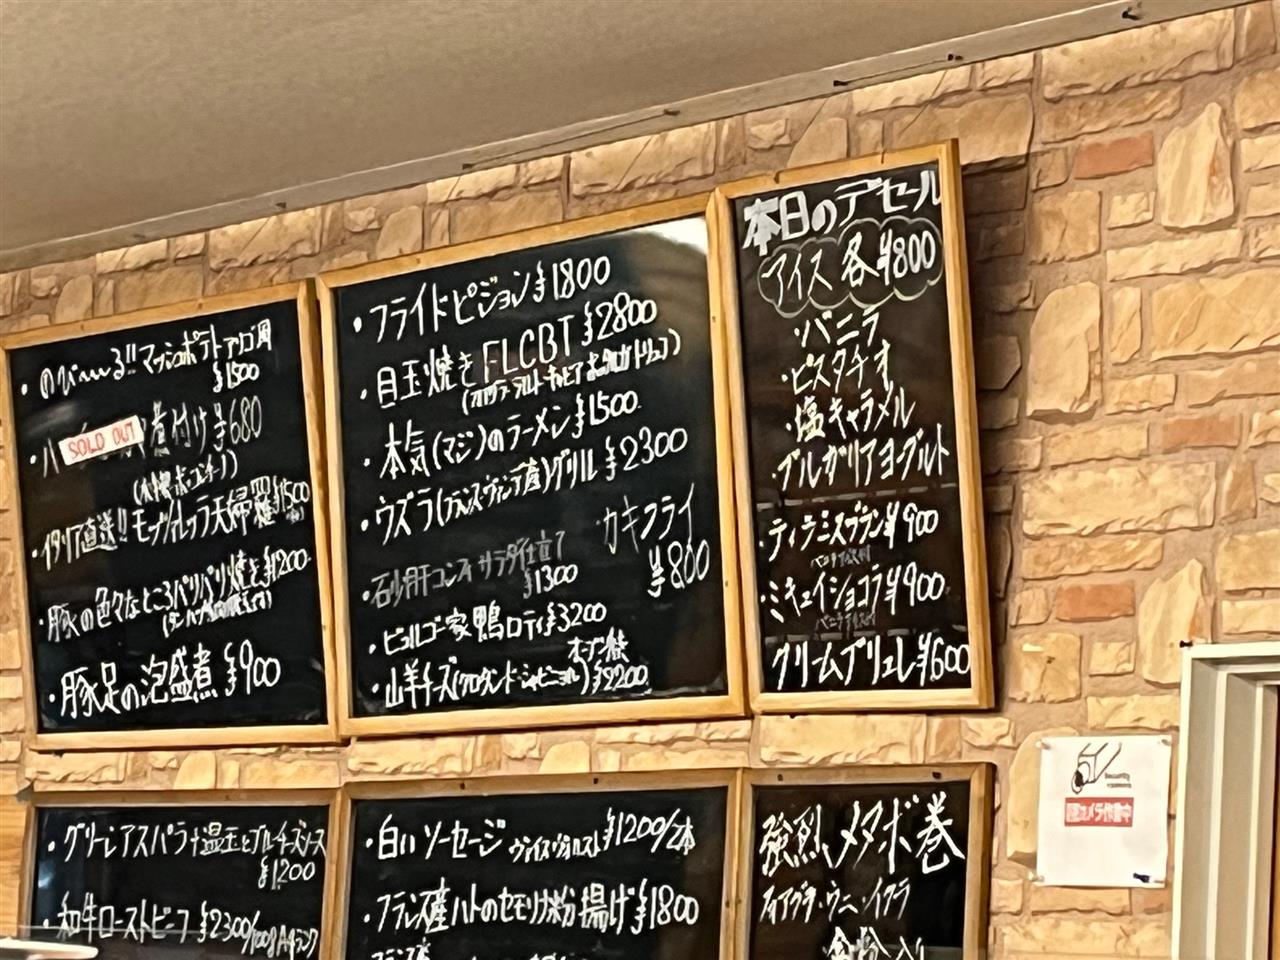 ・のび〜〜る!!マッシュポテト アリゴ風
¥1500
SOLD OUT
煮付け ¥680
・イタリア直送!! モッツァレッラ天婦羅 ¥1500
・豚の色々なところパリパリ焼き ¥1200
・豚足の泡盛煮 ¥900
・フライドピジョン ¥1800
・目玉焼き FLCBT ¥2800
・本気(マジ)のラーメン ¥1500
・ウズラ(フランスヴァンデ産)グリル ¥2300
・カキフライ
¥800
・砂肝コンフィ サラダ仕立て
¥1300
・ビュルゴー家 鴨ロティ ¥3200
オーブン焼き
・山羊チーズ(クロタンド・シャビニョル) ¥2200
本日のデセール
アイス 各¥800
・バニラ
・ピスタチオ
・塩キャラメル
・ブルガリアヨーグルト
・ティラミスブラン ¥900
・ミキュイショコラ ¥900
クリームブリュレ ¥600
・グリーンアスパラ+温玉とブルーチーズソース
¥1200
・和牛ローストビーフ ¥2300/100g A4ランク
・白いソーセージ ヴァイスヴルスト ¥1200/2本
・フランス産ハトのセモリナ粉揚げ ¥1800
強烈、メタボ巻
フォアグラ・ウニ・イクラ
金粉入り
Security
camera
防犯カメラ作動中